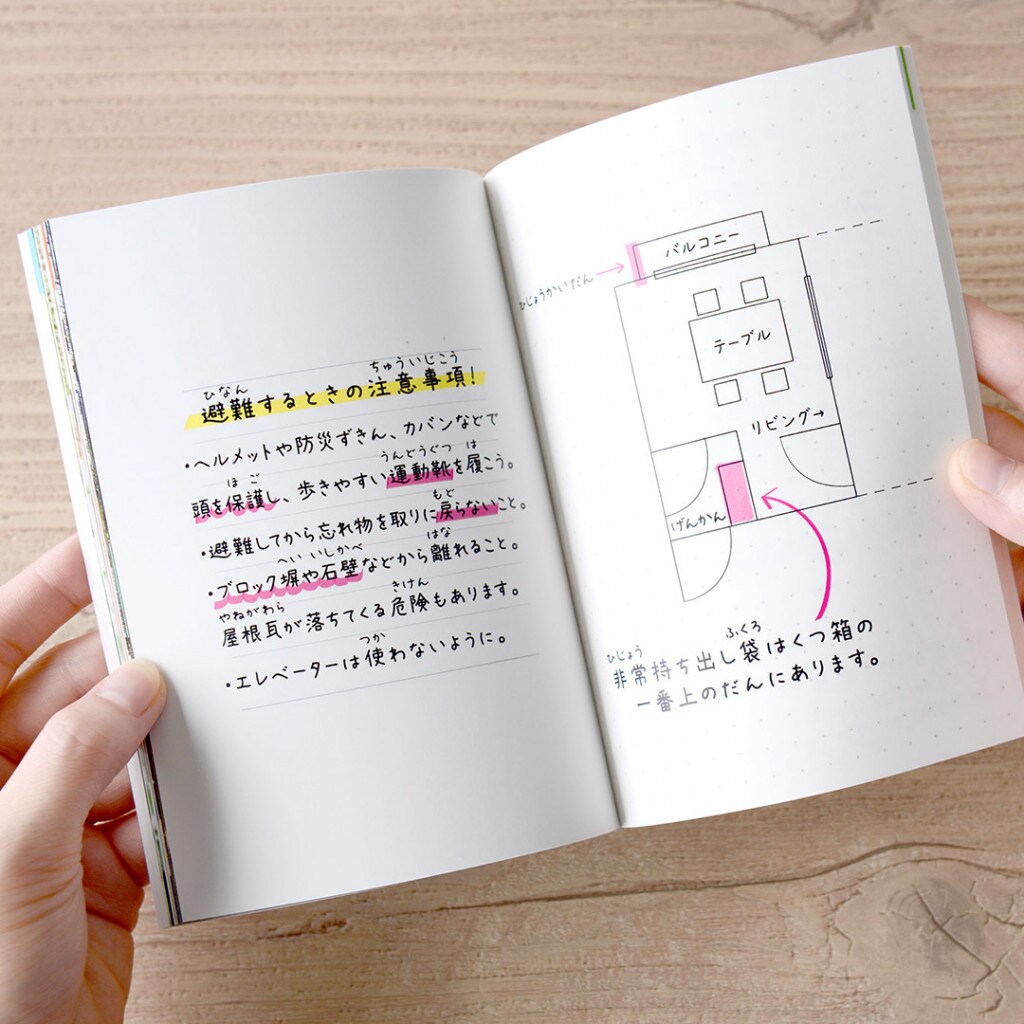 ひなん ちゅういじこう
避難するときの注意事項!
・ヘルメットや防災ずきん、カバンなどで
ほご うんどうぐつ は
頭を保護し、歩きやすい運動靴を履こう。
もど
・避難してから忘れ物を取りに戻らないこと。
へい いしかべ はな
・ブロック塀や石壁などから離れること。
やねがわら きけん
屋根瓦が落ちてくる危険もあります。
つか
・エレベーターは使わないように。
バルコニー
ひじょうかいだん
テーブル
リビング→
げんかん
ひじょう ふくろ
非常持ち出し袋はくつ箱の
一番上のだんにあります。